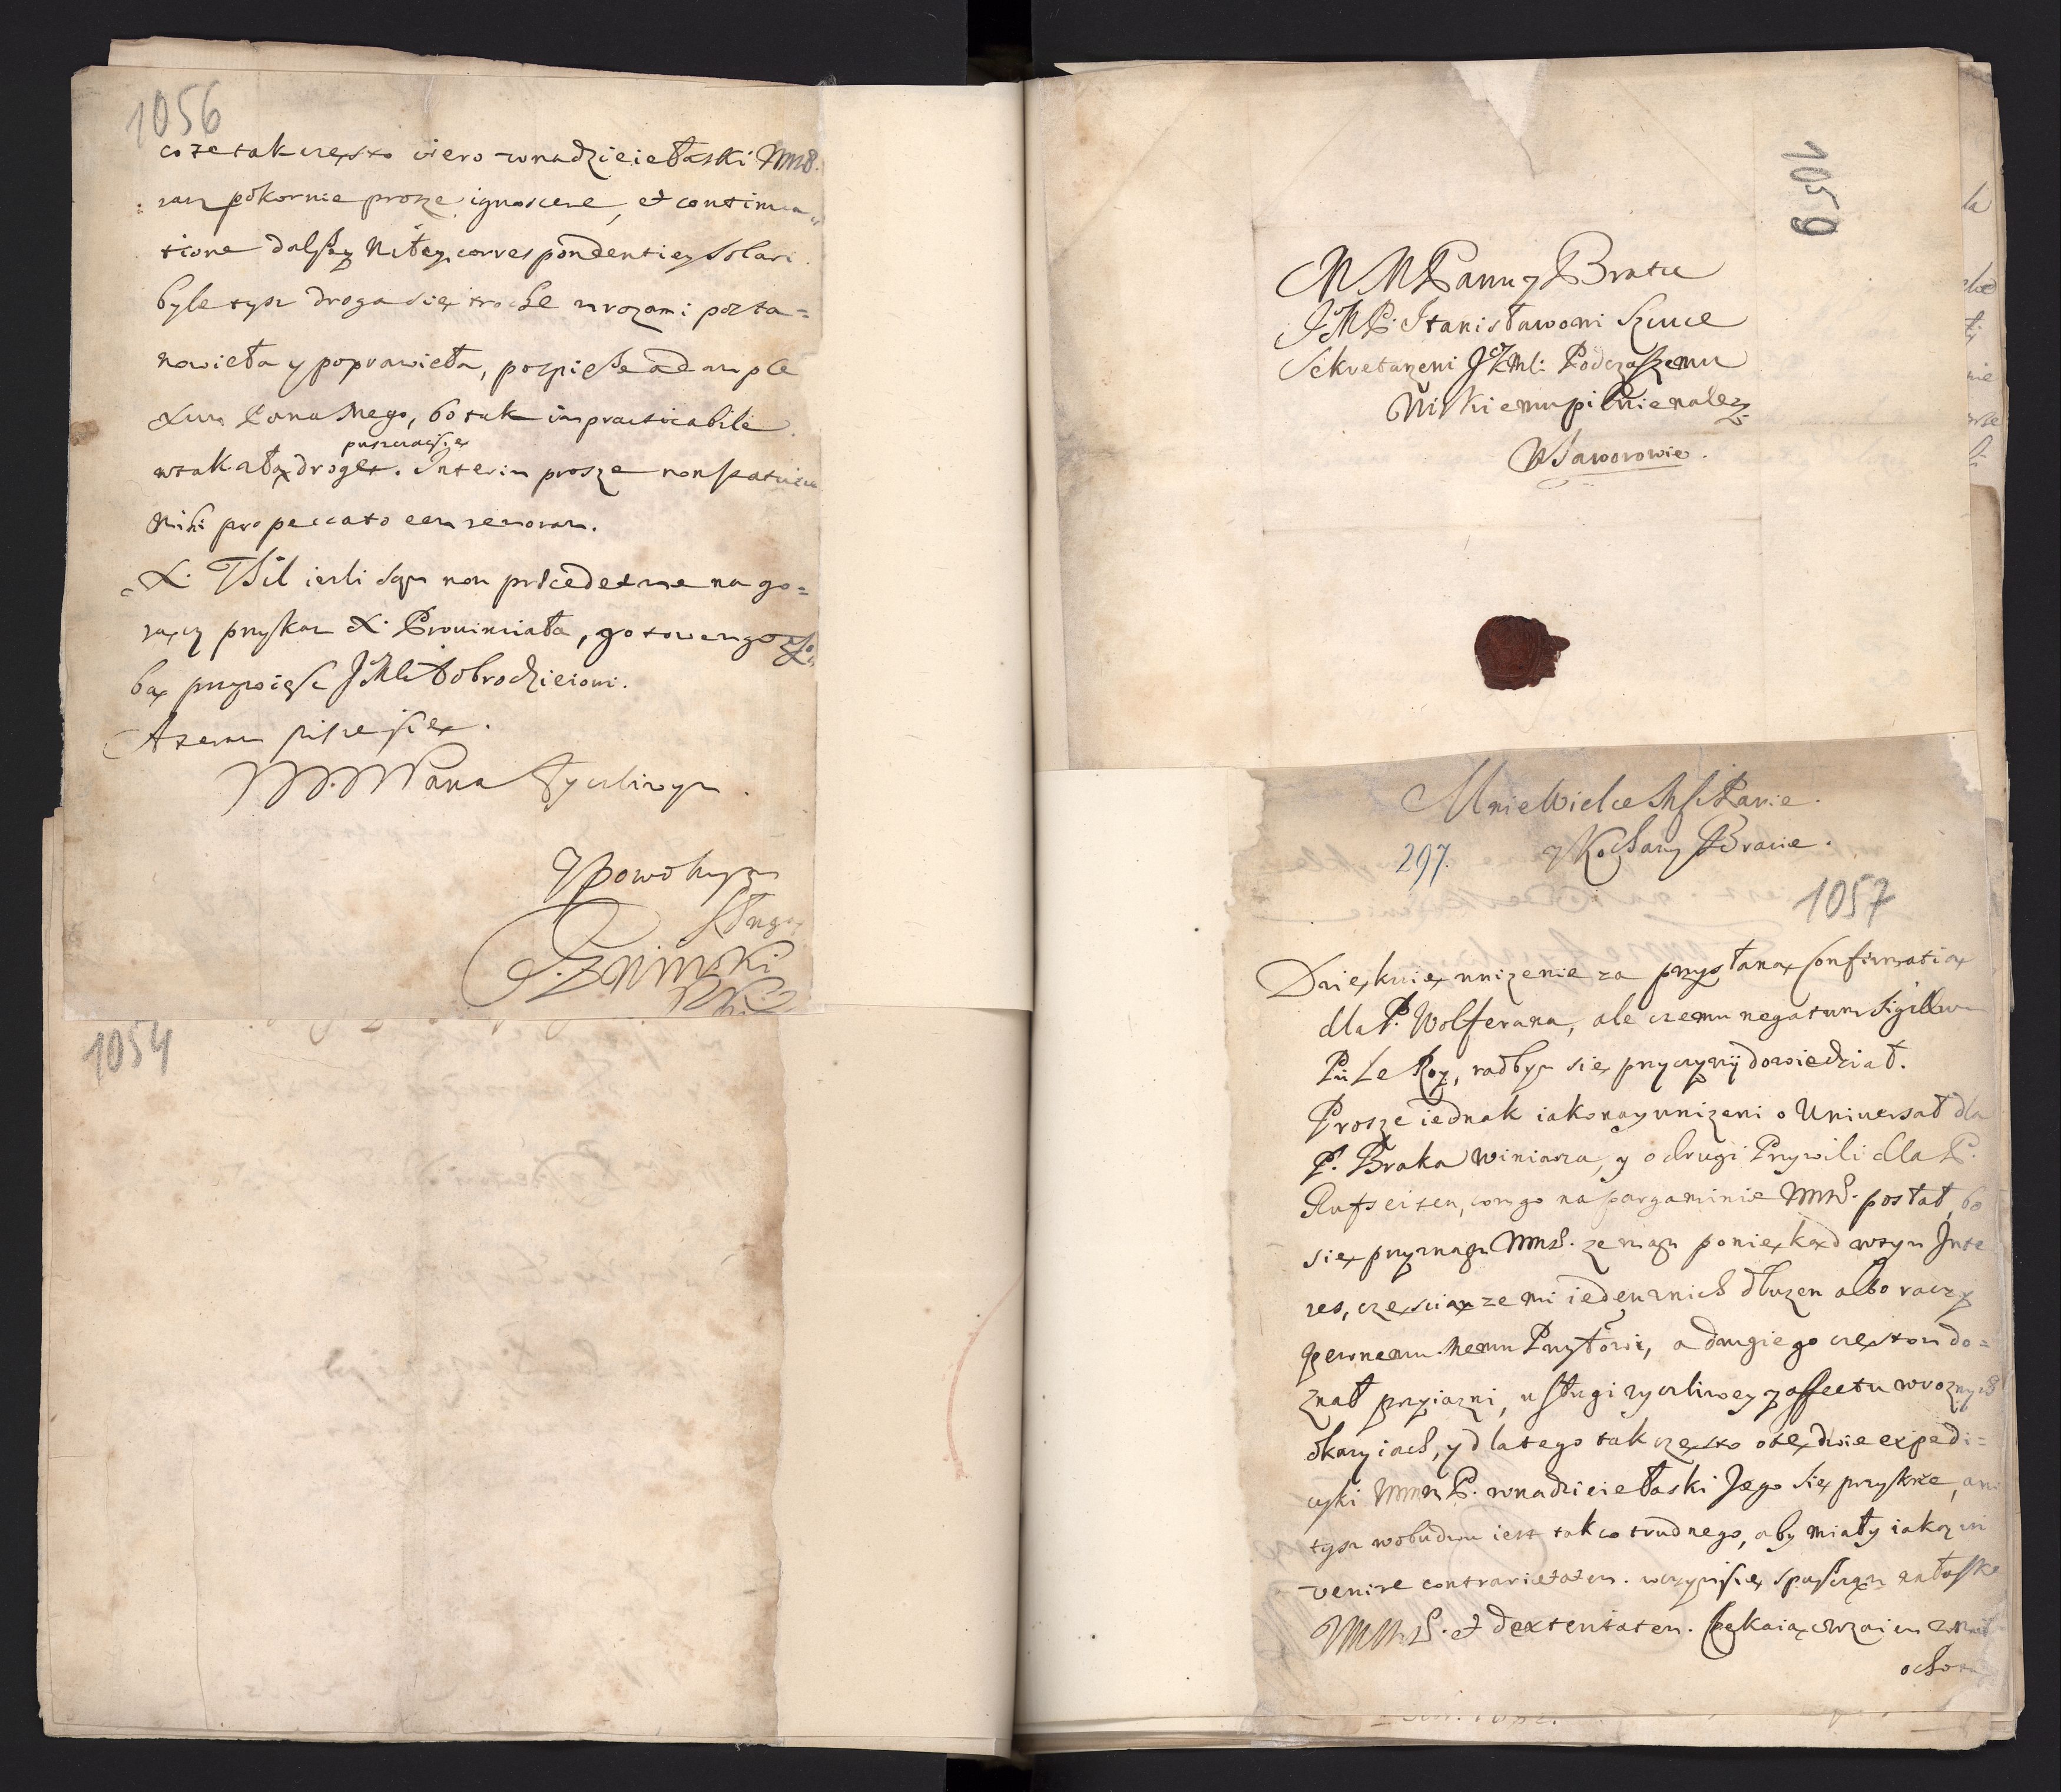 1056
co ze tak często wiero w nadzieie łaski WMM
pokornie prosze ignoscere, et continua-
tione dalszy Miłey correspondentiey solari
byle tysz droga się troche mrozami posta=
nowieła y poprawieła, pospiesze ad ample
xum Pana Mego, bo tak impracticabile
puszczac się
w tak złą drogę. Interim prosze non statuere
mihi pro peccato eam remoram.
X. Thil iesli sam non procedet me na go=
rący przyskaz X. Prouinciała, gotowem go z So
bą przywieść JMli Dobrodzieiowi.
A zemu pisze się
WM. M Pana Zycliwym
Y Powolnym
Sługą
1054
1059
M M Panu y Bratu
JMP. Stanisławowi Szczuce
Sekretarzeni JKMli Podczaszemu
Wiskiemu pilnie należy
W Jaworowie.
Mnie Wielce Mści Panie.
y Kochany Bracie.
297.
1057
Dziękuię unizenie za przysłaną Confirmatią
dla P. Wolferana, ale czemu negatum Sigillum
Pu Le Roy, radbym się przyczyny dowiedział.
Prosze iednak iako nayunizeni o Uniuersał dla
P. Braka Winiarza, y o drugi Przywili dla P.
Rufseisen, com go na pargaminie WMM. posłał, bo
się przyznam WMM. ze mam poniekąd w tym Inte
res, częscią ze mi ieden z nich dłuzen albo raczy
pewnemu memu Przyłowi, a drugiego częstom do=
znał przyiazni, usługi zycliwey y affectu w roznych
okazyiach, y dlatego tak często o te dwie expedi=
cyki WMM P. w nadzieie łaski Jego się przyskrze, ani
tysz w obudwu iest tak co trudnego, aby miały iaką in
venire contrarietatem. w czym się spuszczam na łaskę
WMM P. et dexteritatem. Czekaiąc wzaiem z
ochotą